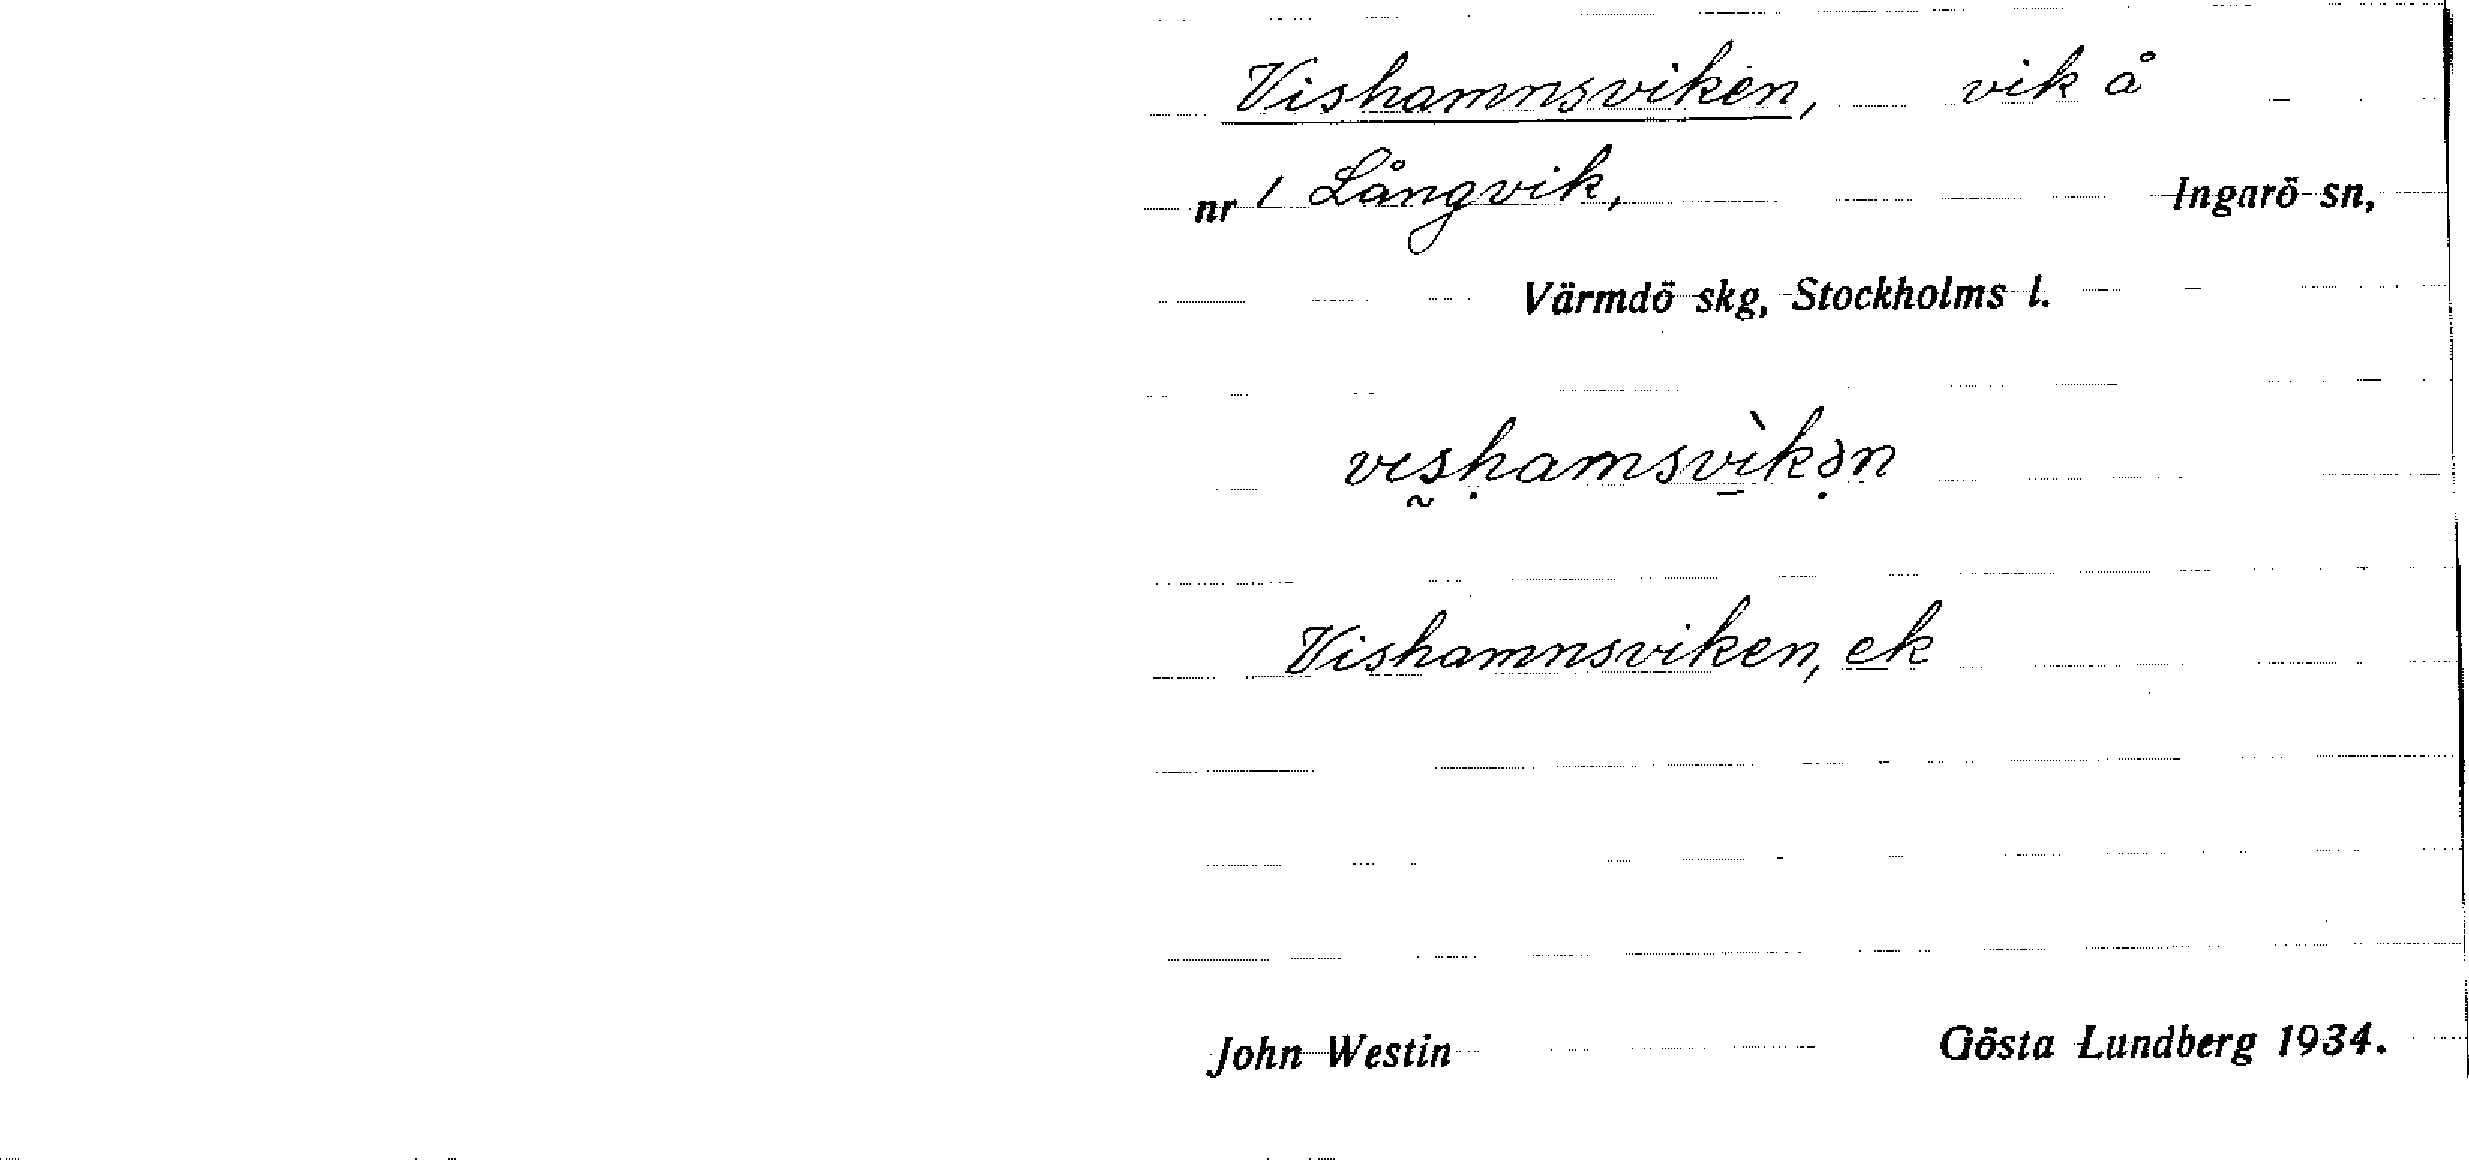 Vishamnsviken, vik å
nr 1 Långvik, Ingarö sn,
Värmdö skg, Stockholms l.
vıs̰ḥamsv̱ìkə̣n
Vishamnsviken, ek
John Westin Gösta Lundberg 1934.